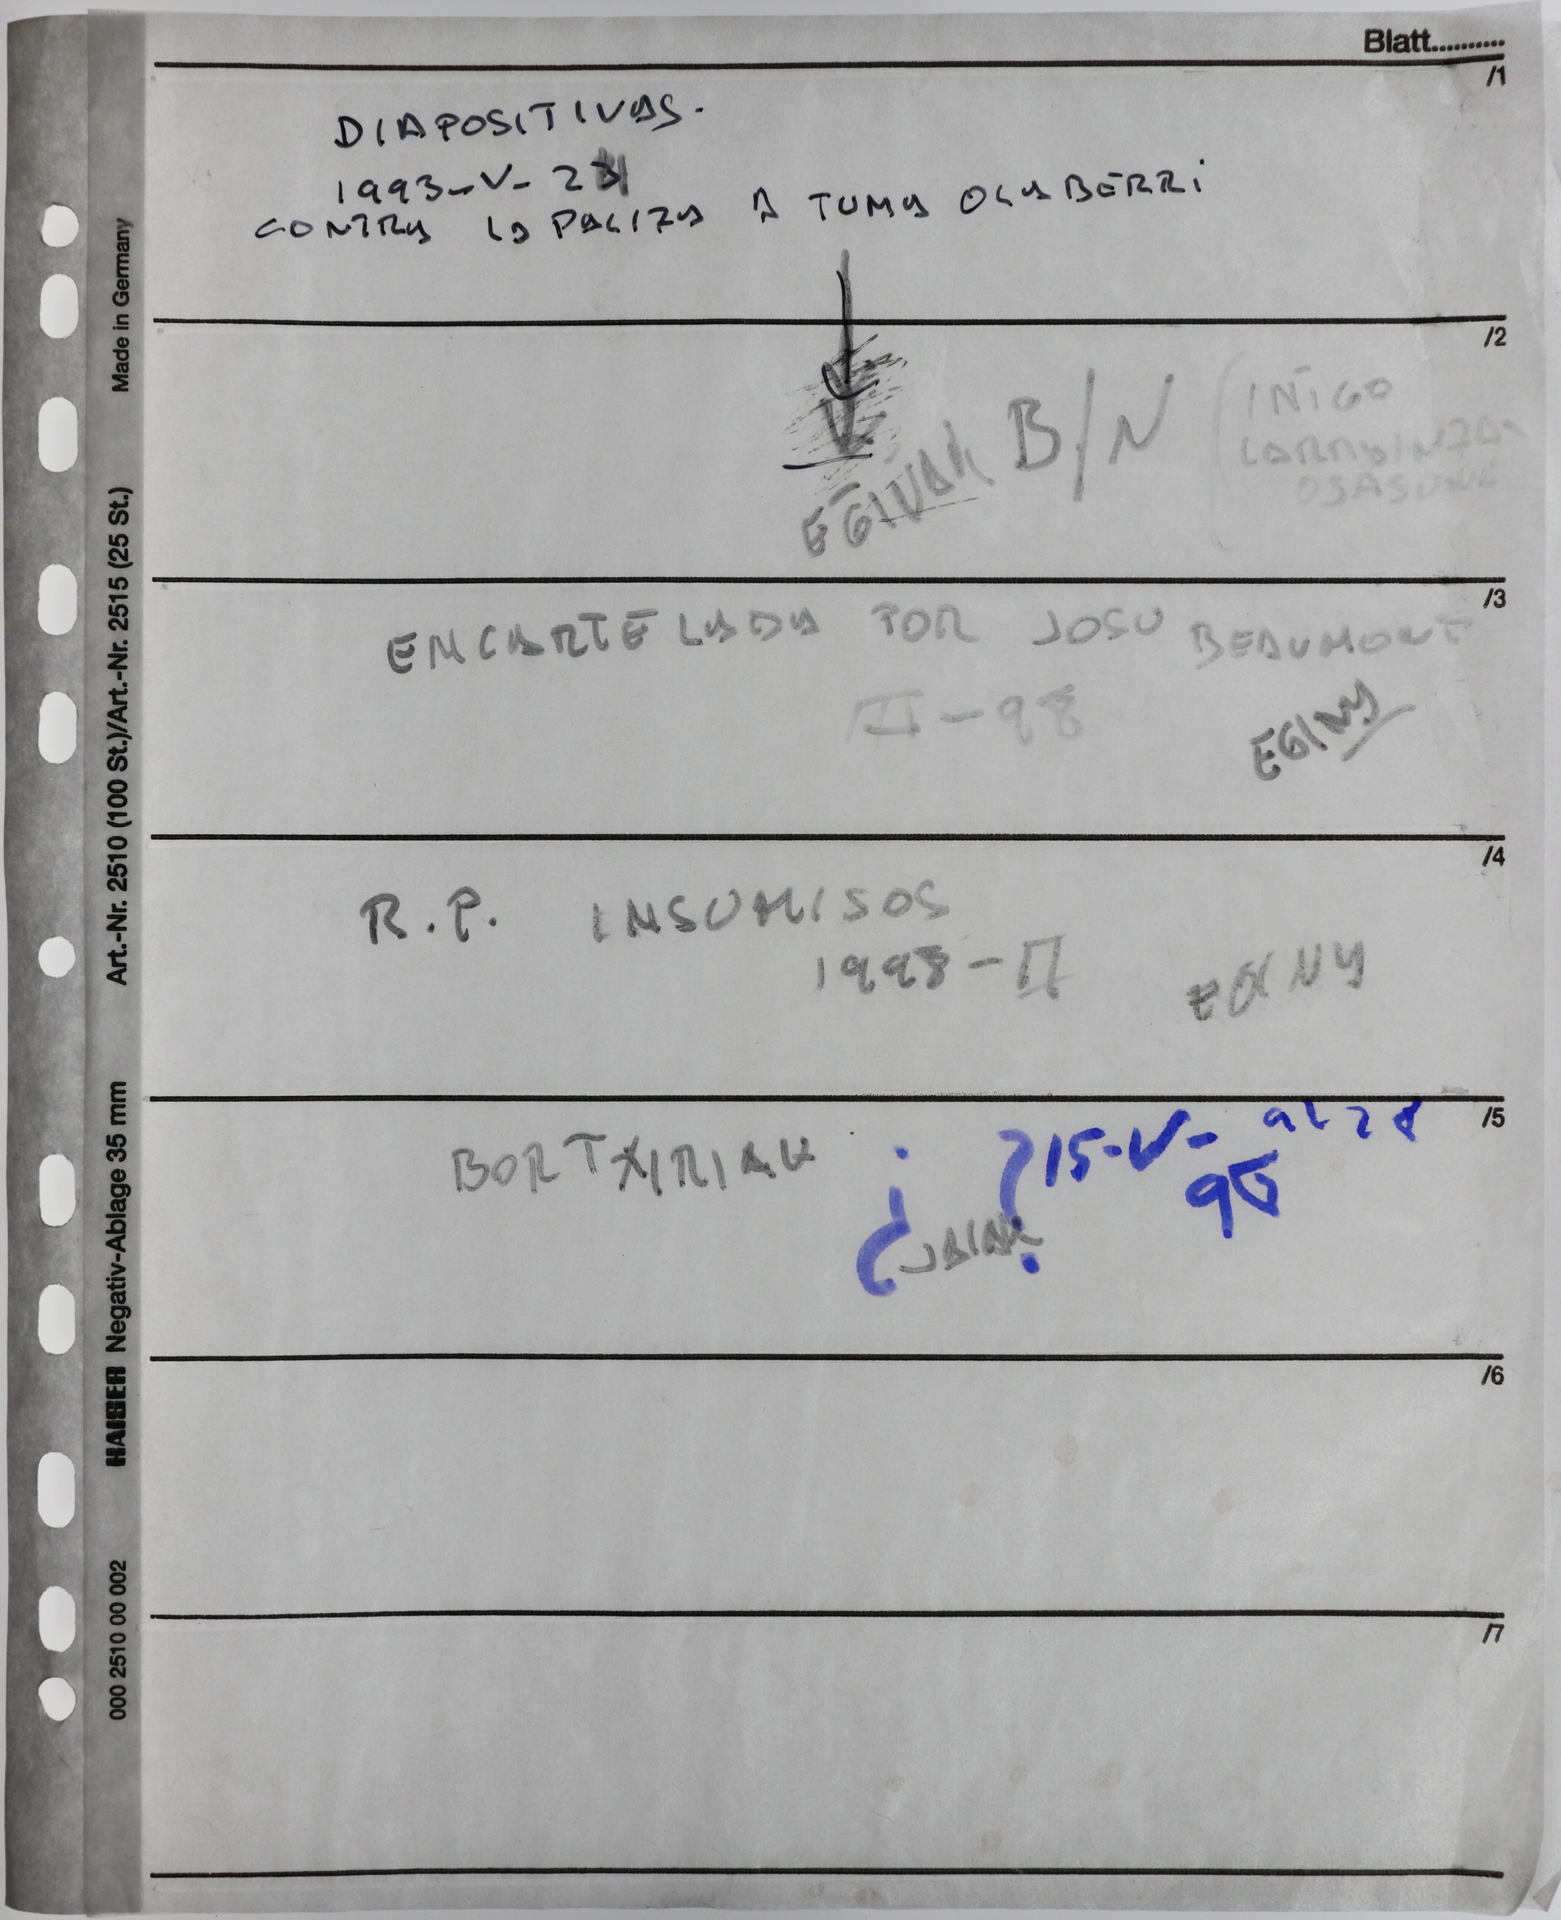 Blatt..........
/1
DIAPOSITIVAS.
1993-V-2
CONTRA LA PALIZA A TUMA OLABERRI
/2
B/N
IÑIGO
LARRAINZAR
OSASUNA
/3
ENCARTELADA POR JOSU BEAUMONT
II-98
EGINA
/4
R.P. INSUMISOS
1998-II
EGINA
/5
BORTXIRIAK
¿JAIAK?
15-V-
95
/6
/7
Made in Germany
Art.-Nr. 2510 (100 St.)/Art.-Nr. 2515 (25 St.)
HAISER Negativ-Ablage 35 mm
000 2510 00 002